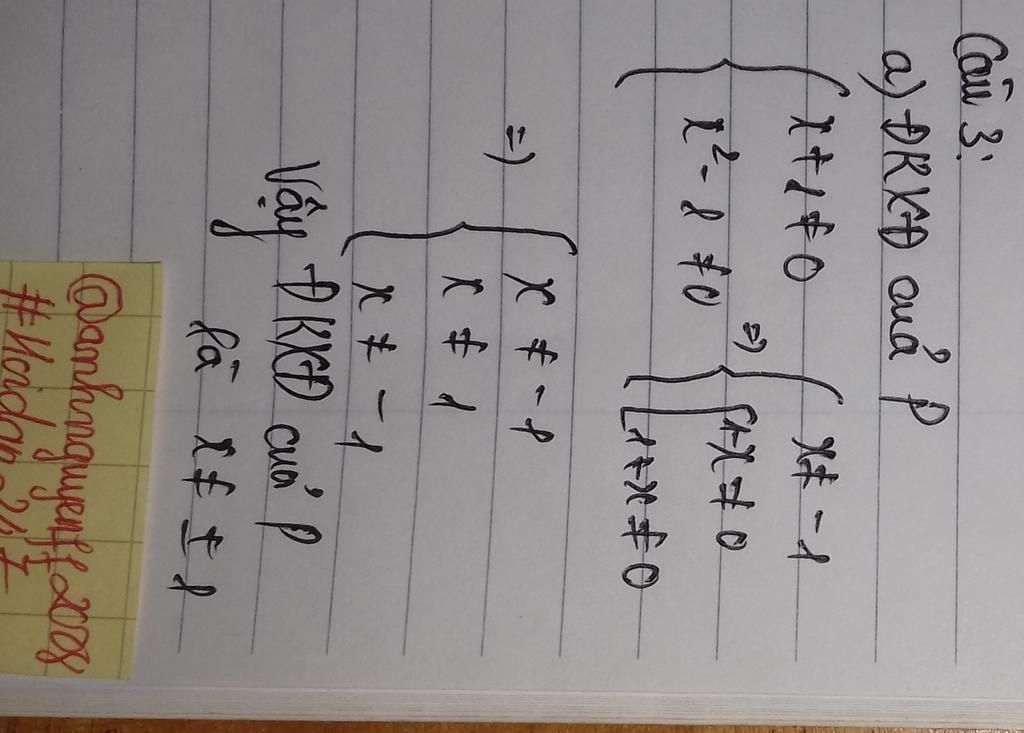 Câu 3:
a) ĐKXĐ cuả P
{ x + 1 ≠ 0
x² - 1 ≠ 0
=> { x ≠ -1
[ 1 - x ≠ 0
1 + x ≠ 0
=> { x ≠ -1
x ≠ 1
x ≠ -1
Vậy ĐKXĐ cuả P
là x ≠ ± 1
@anhnguyenff2008
#Hoidap247